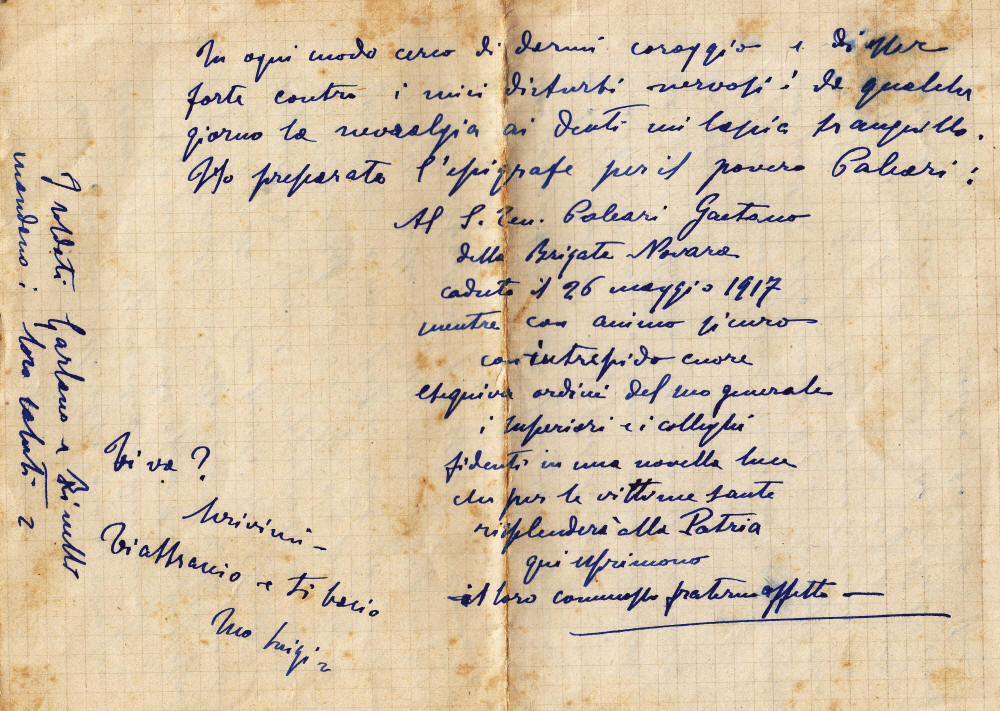 In ogni modo cerco di darmi coraggio e di esser
forte contro i miei disturbi nervosi: da qualche
giorno la nevralgia ai denti mi lascia tranquillo.
Ho preparato l'epigrafe per il povero Paleari:
Al S. Ten. Paleari Gaetano
della Brigata Novara
caduto il 26 maggio 1917
mentre con animo sicuro
con intrepido cuore
eseguiva ordini del suo generale
i superiori e i colleghi
fidenti in una novella luce
che per le vittime sante
risplenderà alla Patria
qui esprimono
il loro commosso fraterno affetto —
Ti va?
Scrivimi –
Ti abbraccio e ti bacio
tuo Luigi
I soldati Garlano e
mandano i loro saluti